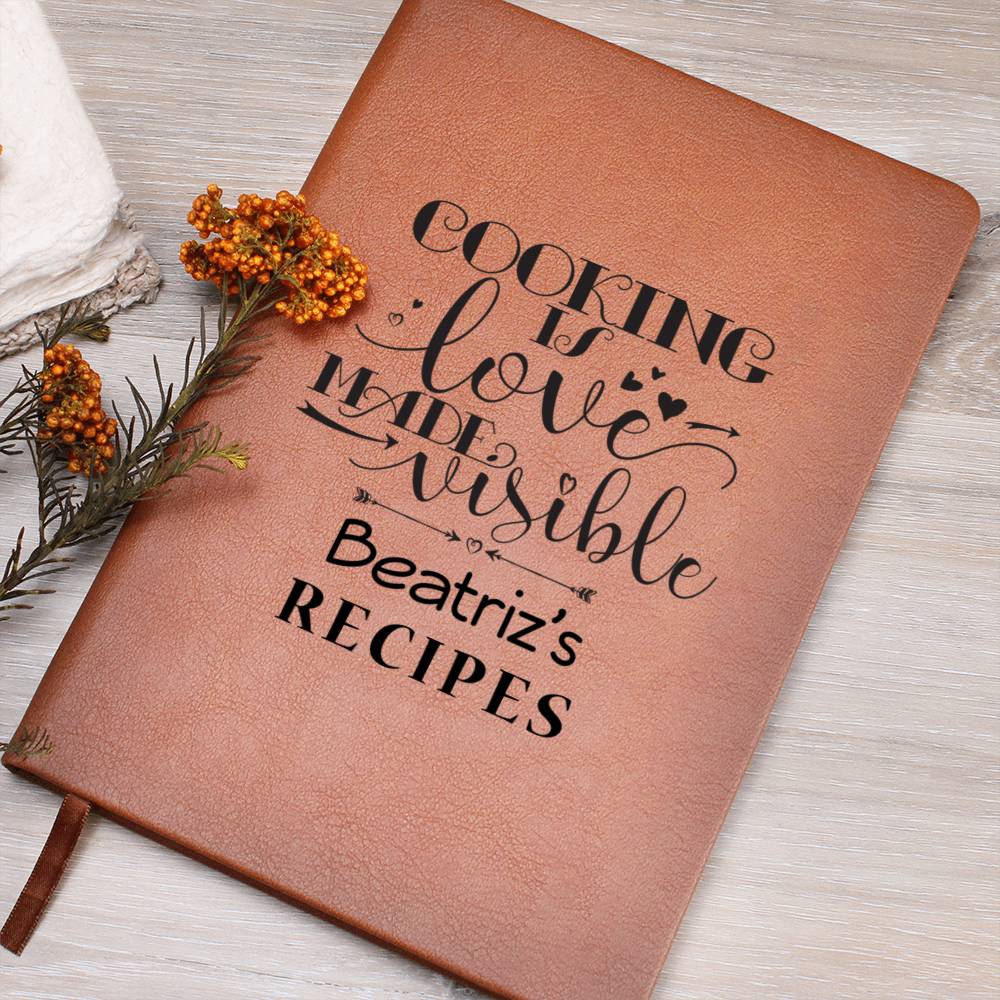 COOKING
IS
love
MADE
visible
Beatriz's
RECIPES